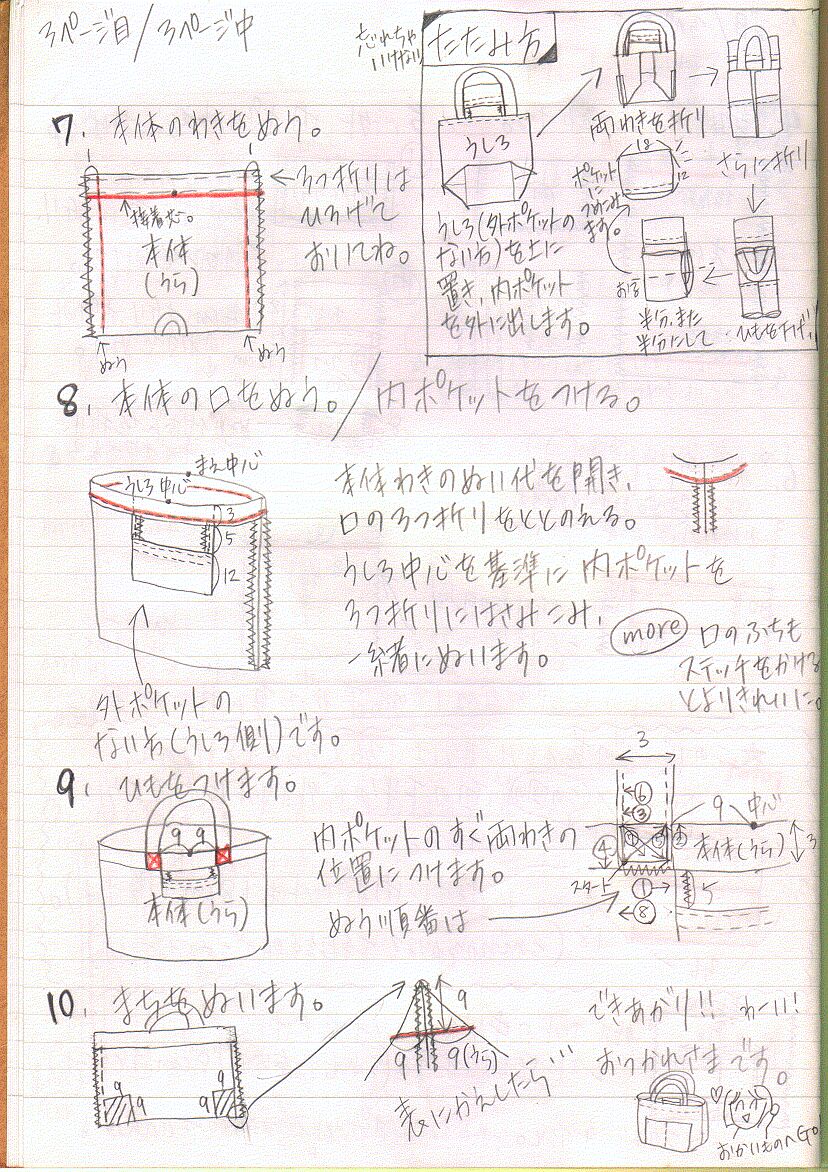 3ページ目/3ページ中
忘れちゃ
いけない
たたみ方
うしろ
両わきを折り
さらに折り
ひもを下げ、
半分、また
半分にして
おる
ポケットに
つめこみ
ます。
18
12
うしろ(外ポケットの
ない方)を上に
置き、内ポケット
を外に出します。
7. 本体のわきをぬう。
接着芯。
本体
(うら)
ぬう
ぬう
←3つ折りは
ひろげて
おいてね。
8. 本体の口をぬう。/内ポケットをつける。
まえ中心
うしろ中心
3
5
12
外ポケットの
ない方(うしろ側)です。
本体わきのぬい代を開き、
口の3つ折りをととのえる。
うしろ中心を基準に内ポケットを
3つ折りにはさみこみ、
一緒にぬいます。
more 口のふちも
ステッチをかける
とよりきれいに。
9. ひもをつけます。
9 9
本体(うら)
内ポケットのすぐ両わきの
位置につけます。
ぬう順番は
3
⑥
③
④
スタート
①
⑧
9 中心
本体(うら)
3
5
10. まちをぬいます。
9
9
9
9
9 9(うら)
表にかえしたら…
できあがり!! わーい!
おつかれさまです。
おかいものへGO!